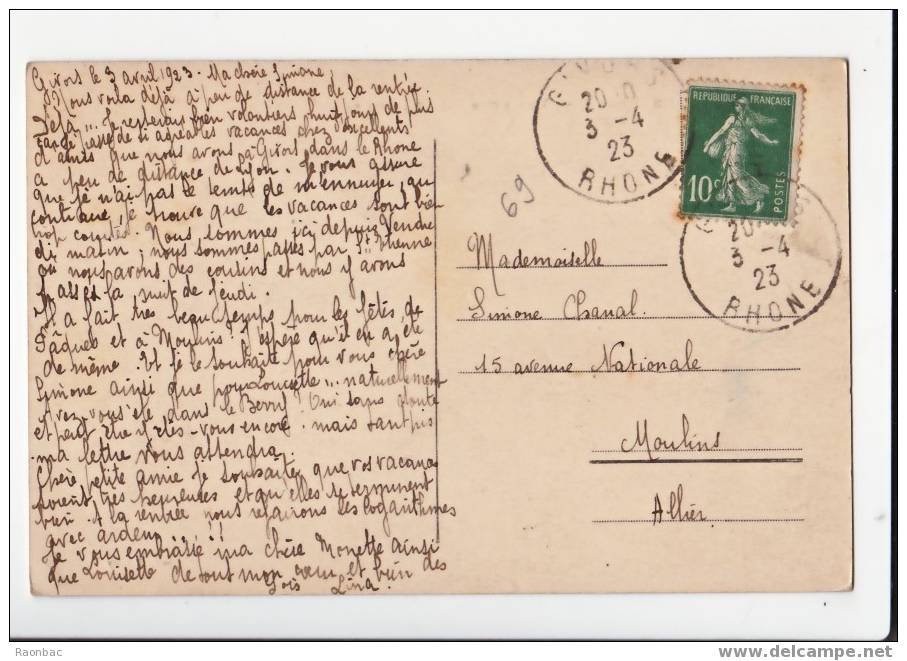 Givors le 3 avril 1923. Ma chère Simone,
Nous voilà déjà à peu de distance de la rentrée.
Déjà... Je resterais bien volontiers huit jours de plus
de si agréables vacances chez d'excellents
d'amis que nous avons à Givors, dans le Rhône
à peu de distance de Lyon. Je vous assure
que je n'ai pas le temps de m'ennuyer, au
contraire, je trouve que les vacances sont bien
trop courtes. Nous sommes ici depuis Vendre
di matin, nous sommes passés par St Etienne
où nous avons des cousins et nous y avons
passé la nuit de jeudi.
Il a fait très beau temps pour les fêtes de
Pâques et à Moulins j'espère qu'il en a été
de même. Et je le souhaite pour vous chère
Simone ainsi que pour Loucette... naturellement
Avez-vous été dans le Berry? Oui sans doute
et peut être y êtes-vous encore. mais tant pis
ma lettre vous attendra.
Chère petite amie je souhaite que vos vacances
soient très heureuses et qu'elles se terminent
bien. A la rentrée nous referons les logarithmes
avec ardeur!!
Je vous embrasse ma chère Monette ainsi
que Louisette de tout mon cœur et bien des
fois Lina.
GIVORS
20
3 - 4
23
RHONE
REPUBLIQUE FRANÇAISE
10c
POSTES
20
3 - 4
23
RHONE
69
Mademoiselle
Simone Chanal
15 avenue Nationale
Moulins
Allier
Raonbac
delcampe.net